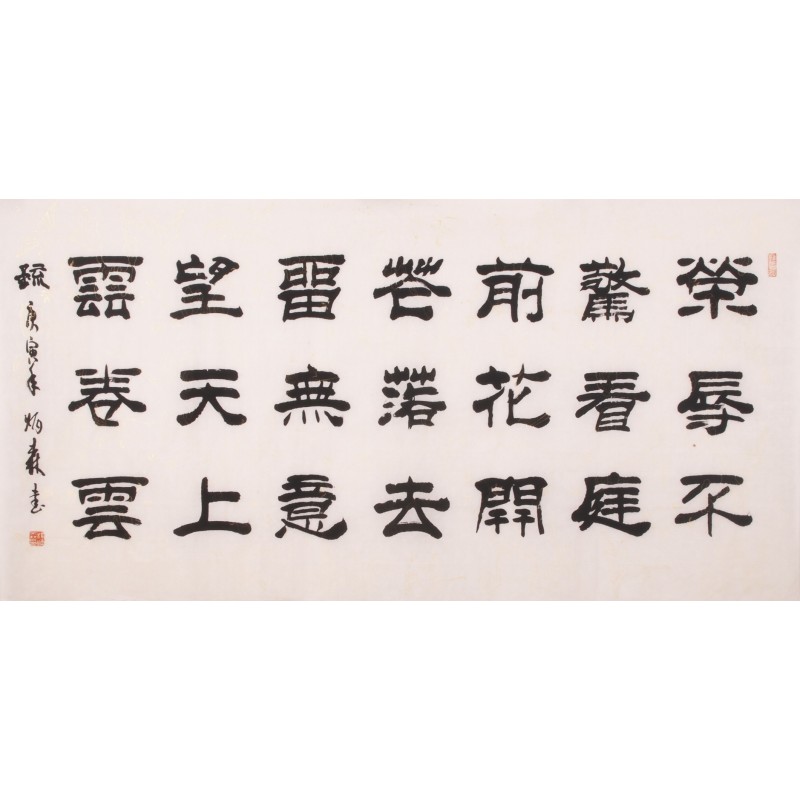 榮辱不
驚看庭
前花開
花落去
留無意
望天上
雲卷雲
疏 庚寅年炳森書